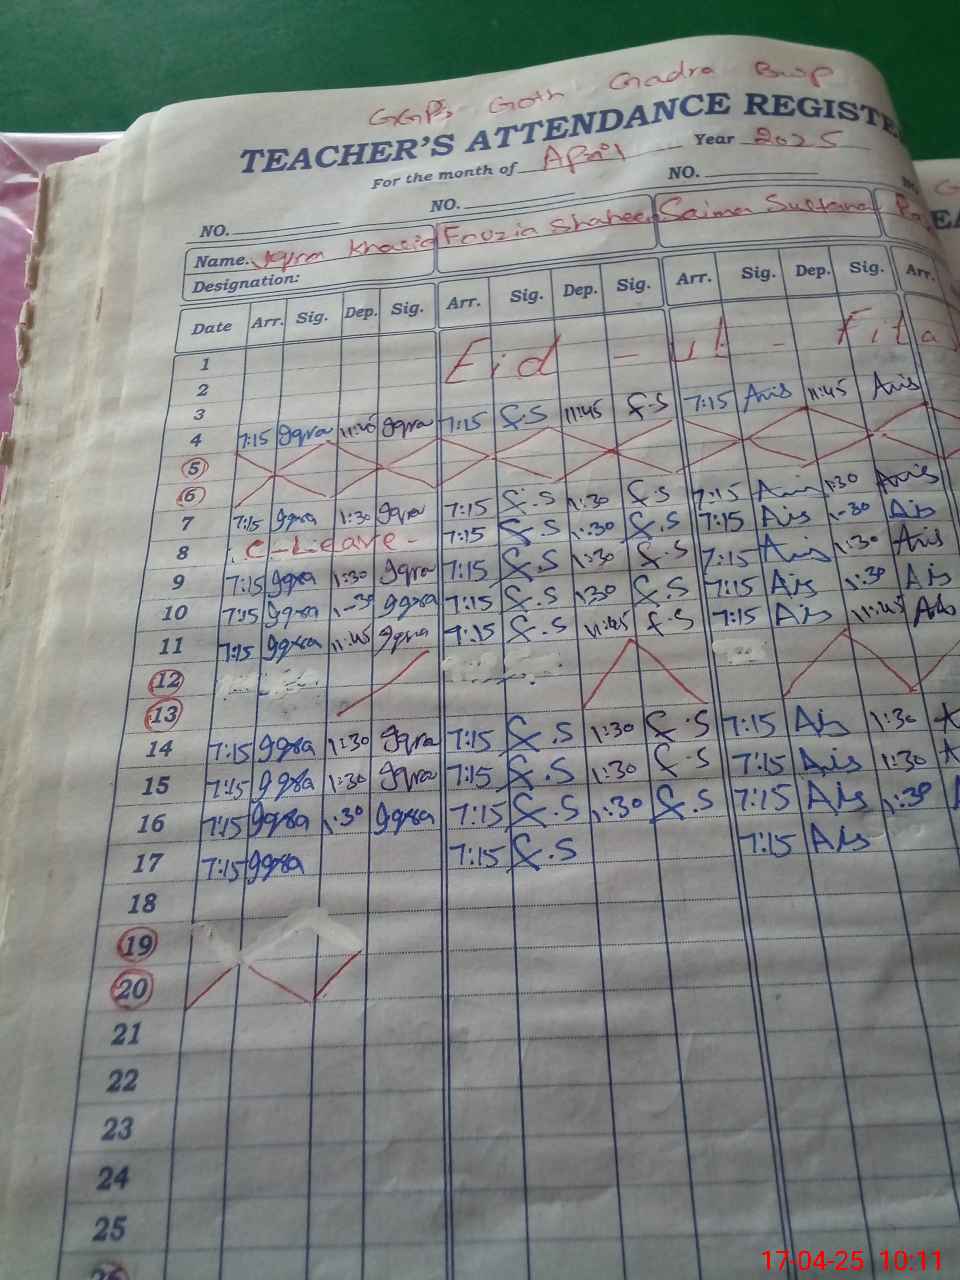 GGPS Goth Gadra Bwp
TEACHER'S ATTENDANCE REGISTE
For the month of April Year 2025
NO. NO. NO.
Name. Iqra Khalid Fouzia Shaheen Saima Sultana
Designation:
Date Arr. Sig. Dep. Sig. Arr. Sig. Dep. Sig. Arr. Sig. Dep. Sig. Arr.
1 Eid - ul - Fita
2
3
4 7:15 Iqra 11:45 Iqra 7:15 F.S 11:45 F.S 7:15 Ais 11:45 Ais
5
6
7 7:15 Iqra 1:30 Iqra 7:15 F.S 1:30 F.S 7:15 Ais 1:30 Ais
8 C-Leave- 7:15 F.S 1:30 F.S 7:15 Ais 1-30 Ais
9 7:15 Iqra 1:30 Iqra 7:15 F.S 1:30 F.S 7:15 Ais 1:30 Ais
10 7:15 Iqra 1-30 Iqra 7:15 F.S 1:30 F.S 7:15 Ais 1:30 Ais
11 7:15 Iqra 11:45 Iqra 7:15 F.S 11:45 F.S 7:15 Ais 11:45 Ais
12
13
14 7:15 Iqra 1:30 Iqra 7:15 F.S 1:30 F.S 7:15 Ais 1:30
15 7:15 Iqra 1:30 Iqra 7:15 F.S 1:30 F.S 7:15 Ais 1:30
16 7:15 Iqra 1:30 Iqra 7:15 F.S 1:30 F.S 7:15 Ais 1:30
17 7:15 Iqra 7:15 F.S 7:15 Ais
18
19
20
21
22
23
24
25
26
17-04-25 10:11